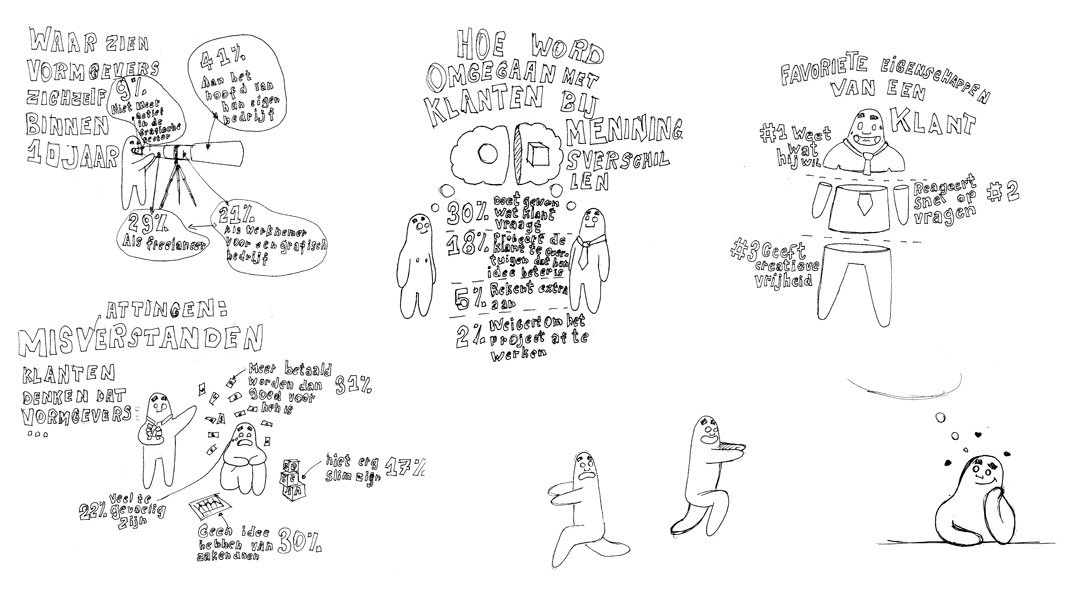 WAAR ZIEN
VORMGEVERS
ZICHZELF
BINNEN
10 JAAR
9%
Niet meer
actief
in de
grafische
sector
41%
Aan het
hoofd van
hun eigen
bedrijf
29%
Als freelancer
21%
Als werknemer
voor een grafisch
bedrijf
HOE WORD
OMGEGAAN MET
KLANTEN BIJ
MENINING
SVERSCHIL
LEN
30%
Doet gewoon
wat klant
vraagt
18%
Probeert de
klant te over-
tuigen dat hun
idee beter is
5%
Rekent extra
aan
2%
Weigert om het
project af te
werken
FAVORIETE EIGENSCHAPPEN
VAN EEN
KLANT
#1 Weet
wat
hij wil
Reageert
snel op
vragen
#2
#3 Geeft
creatieve
vrijheid
ATTINGEN:
MISVERSTANDEN
KLANTEN
DENKEN DAT
VORMGEVERS:
...
Meer betaald
worden dan
goed voor
hen is
31%
niet erg
slim zijn
17%
22%
veel te
gevoelig
zijn
Geen idee
hebben van
zakendoen
30%